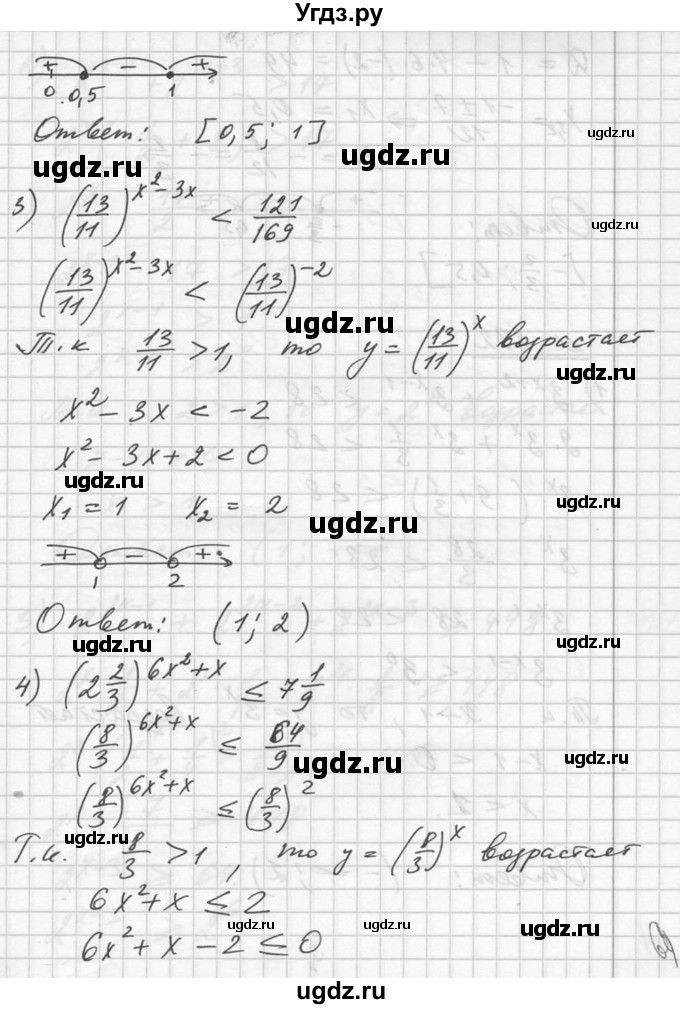 Угдз.ру
+ − +
0 0,5 1
Ответ: [0,5; 1]
ugdz.ru ugdz.ru
3) (13/11)^(x²−3x) < 121/169
ugdz.ru
(13/11)^(x²−3x) < (13/11)^(−2)
ugdz.ru ugdz.ru
Т.к 13/11 > 1, то y = (13/11)^x возрастает
ugdz.ru
x² − 3x < −2
x² − 3x + 2 < 0
ugdz.ru ugdz.ru
x₁ = 1 x₂ = 2
ugdz.ru
+ − +
1 2
Ответ: (1; 2)
ugdz.ru ugdz.ru
4) (2 2/3)^(6x²+x) ≤ 7 1/9
ugdz.ru
(8/3)^(6x²+x) ≤ 64/9
ugdz.ru
(8/3)^(6x²+x) ≤ (8/3)²
ugdz.ru
Т.к. 8/3 > 1, то y = (8/3)^x возрастает
ugdz.ru
6x² + x ≤ 2
ugdz.ru ugdz.ru ugdz.ru
6x² + x − 2 ≤ 0
ugdz.ru